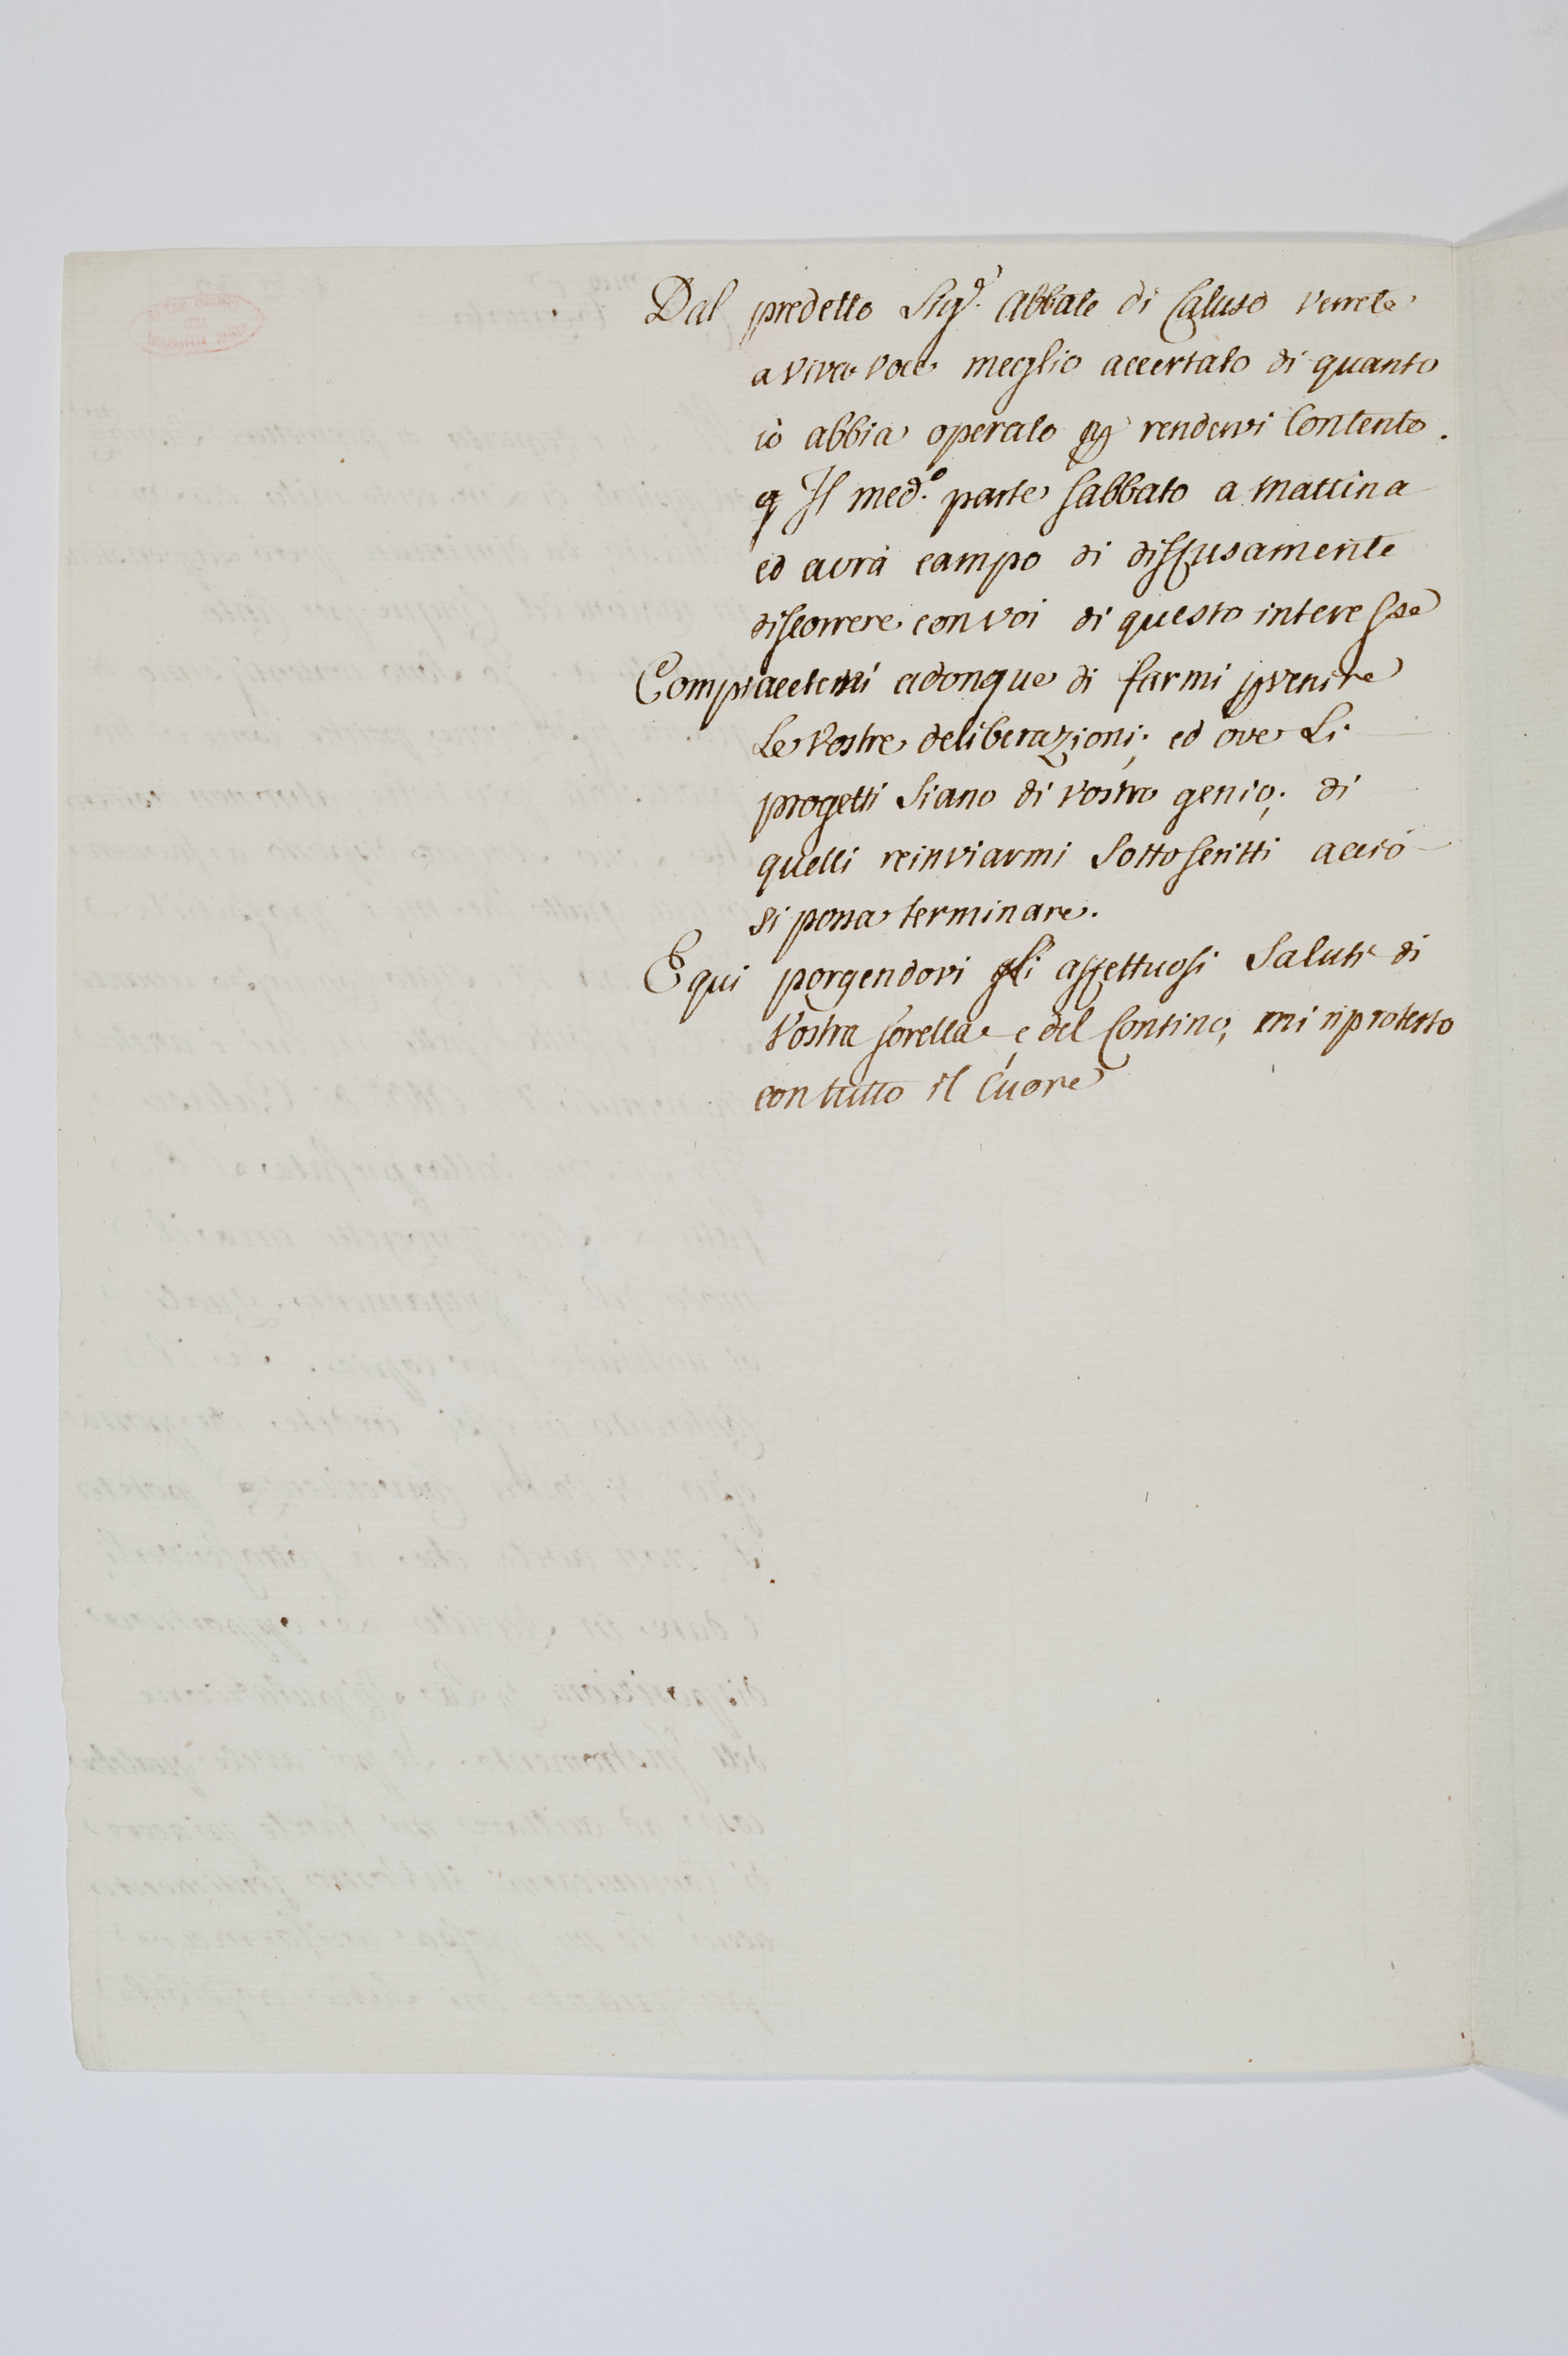 Dal predetto Sig.r Abbate di Caluso verrete
a viva voce meglio accertato di quanto
iò abbia operato per rendervi Contento.
Il med.o parte sabbato a mattina
ed avrà campo di diffusamente
discorrere con voi di questo interesse
Compiacetemi adonque di farmi pvenire
Le Vostre deliberazioni; ed ove Li
progetti Siano di vostro genio; di
quelli reinviarmi Sottoscritti acciò
si possa terminare.
E qui porgendovi gli affettuosi Saluti di
Vostra sorella e del Contino, mi riprotesto
con tutto il Cuore